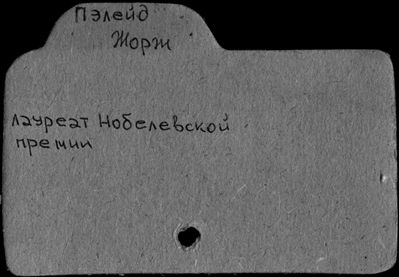 Пэлейд
Жорж
лауреат Нобелевской
премии